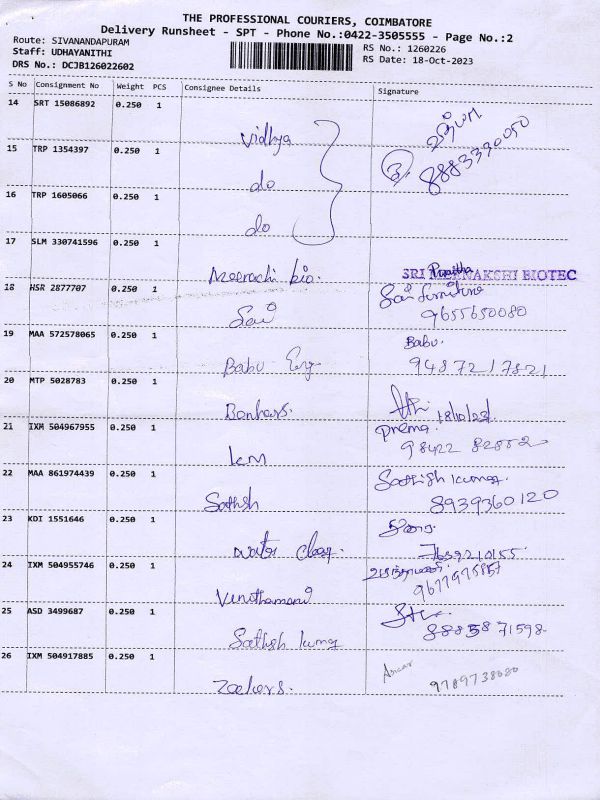 THE PROFESSIONAL COURIERS, COIMBATORE
Delivery Runsheet - SPT - Phone No.:0422-3505555 - Page No.:2
Route: SIVANANDAPURAM
Staff: UDHAYANITHI
DRS No.: DCJB126022602
RS No.: 1260226
RS Date: 18-Oct-2023
S No Consignment No Weight PCS Consignee Details Signature
14 SRT 15086892 0.250 1
vidhya
வித்யா
8883330050
15 TRP 1354397 0.250 1
do
3
16 TRP 1605066 0.250 1
do
17 SLM 330741596 0.250 1
Meenachi bio.
SRI MEENAKSHI BIOTEC
18 HSR 2877707 0.250 1
Sai
Sai furniture
9655650080
19 MAA 572578065 0.250 1
Babu Eng
Babu.
9487217821
20 MTP 5028783 0.250 1
18/10/23
21 IXM 504967955 0.250 1
Icm
Prema.
98422 82552
22 MAA 861974439 0.250 1
Sathish
Sathish kumar.
8939360120
23 KDI 1551646 0.250 1
water
7639210155
24 IXM 504955746 0.250 1
Vinothamani
9677975857
25 ASD 3499687 0.250 1
Sathish kumar
88258 71598
26 IXM 504917885 0.250 1
Zackers.
9789738080